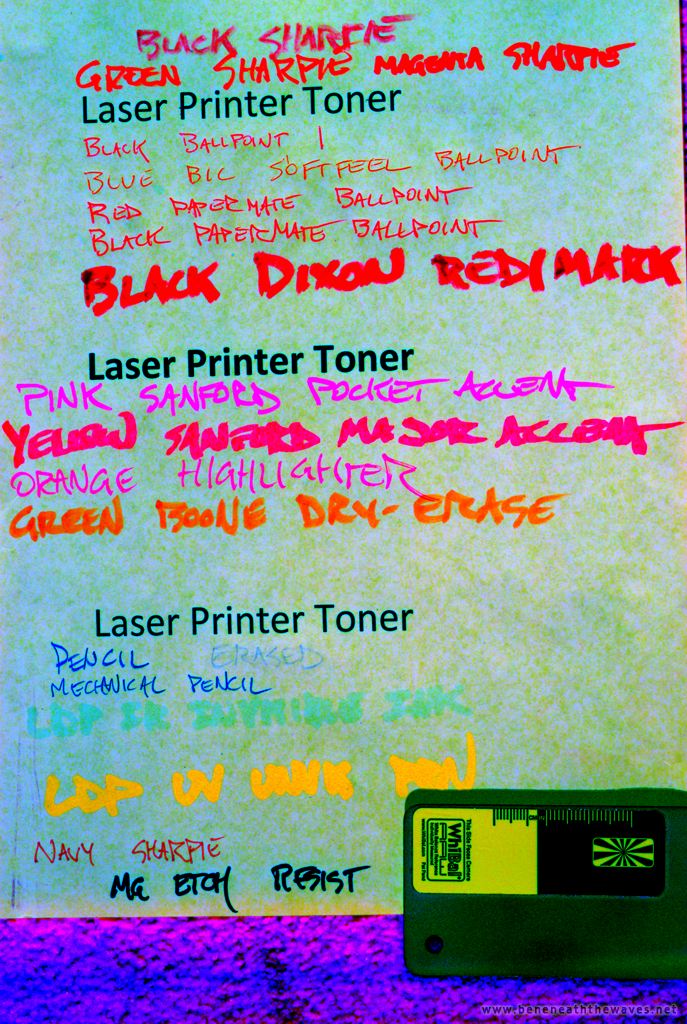 BLACK SHARPIE
GREEN SHARPIE MAGENTA SHARPIE
Laser Printer Toner
BLACK BALLPOINT 1
BLUE BIC SOFTFEEL BALLPOINT
RED PAPERMATE BALLPOINT
BLACK PAPERMATE BALLPOINT
BLACK DIXON REDIMARK
Laser Printer Toner
PINK SANFORD POCKET ACCENT
YELLOW SANFORD MAJOR ACCENT
ORANGE HIGHLIGHTER
GREEN BOONE DRY-ERASE
Laser Printer Toner
PENCIL ERASED
MECHANICAL PENCIL
LDP IR INVISIBLE INK
LDP UV PEN
NAVY SHARPIE
MG ETCH RESIST
This Side Faces Camera
WhiBal
www.beneneaththewaves.net